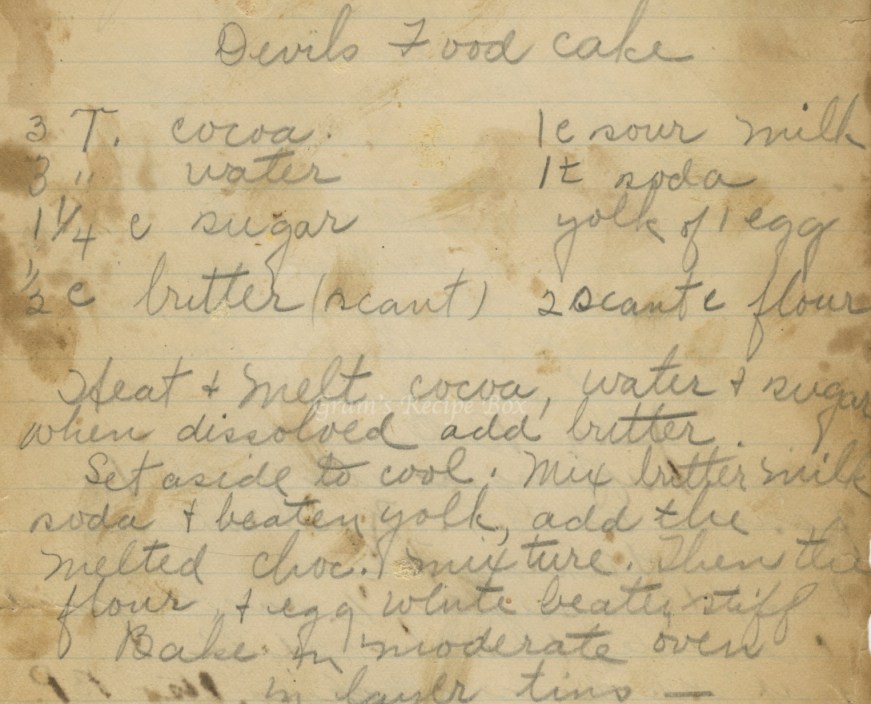 Devils Food cake
3 T. cocoa.
3 " water
1 1/4 c sugar
1/2 c butter (scant)
1c sour milk
1t soda
yolk of 1 egg
2 scant c flour
Heat + melt cocoa, water + sugar
when dissolved add butter.
Set aside to cool. Mix buttermilk
soda + beaten yolk, add the
melted choc. mixture. Then the
flour, + egg white beaten stiff
Bake in moderate oven
in layer tins —
Gram's Recipe Box